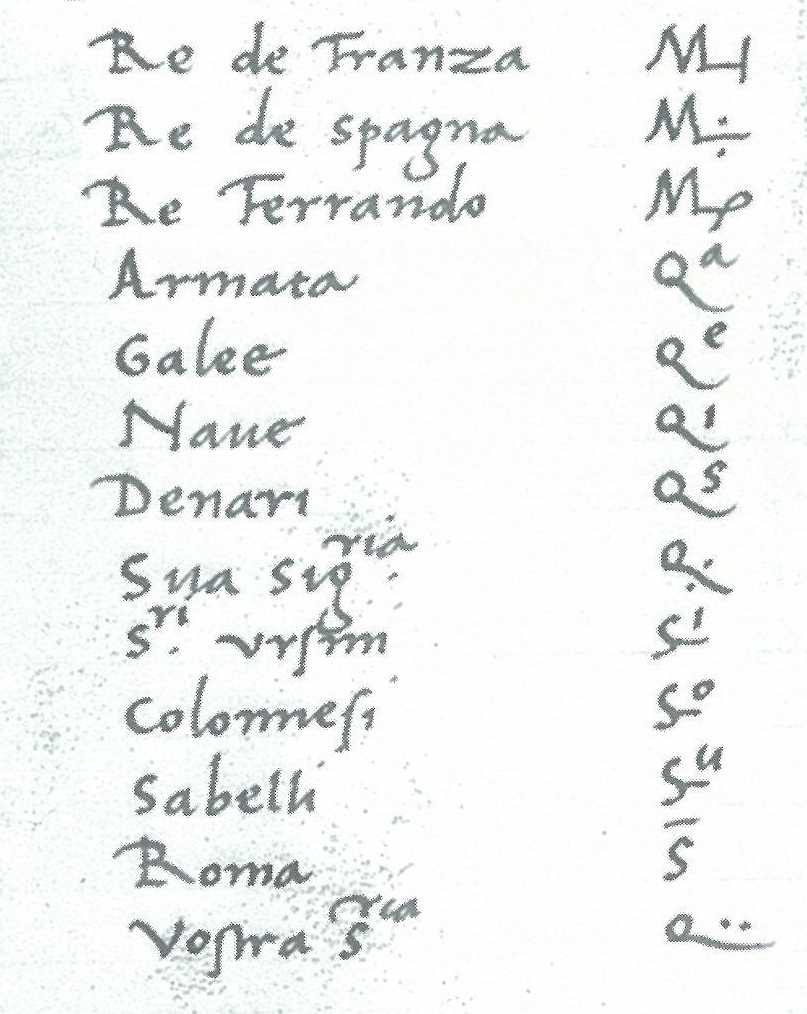 Re de Franza M
Re de spagna M
Re Ferrando M
Armata Q a
Galee Q e
Naue Q i
Denari Q s
Sua sig.ria Q
S.ri vrſini S i
Colonneſi S o
Sabelli S u
Roma S̄
Voſtra S.ria Q ..